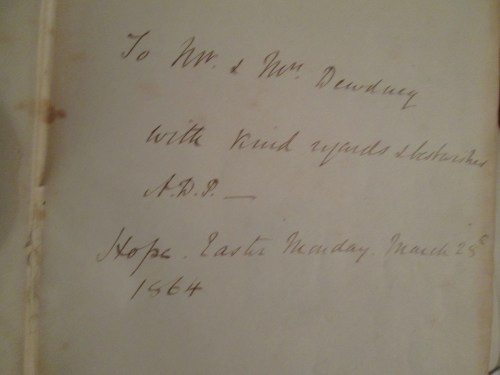 To Mr. & Mrs. Dewdney
with kind regards & best wishes
A.D.P. —
Hope. Easter Monday March 28th
1864